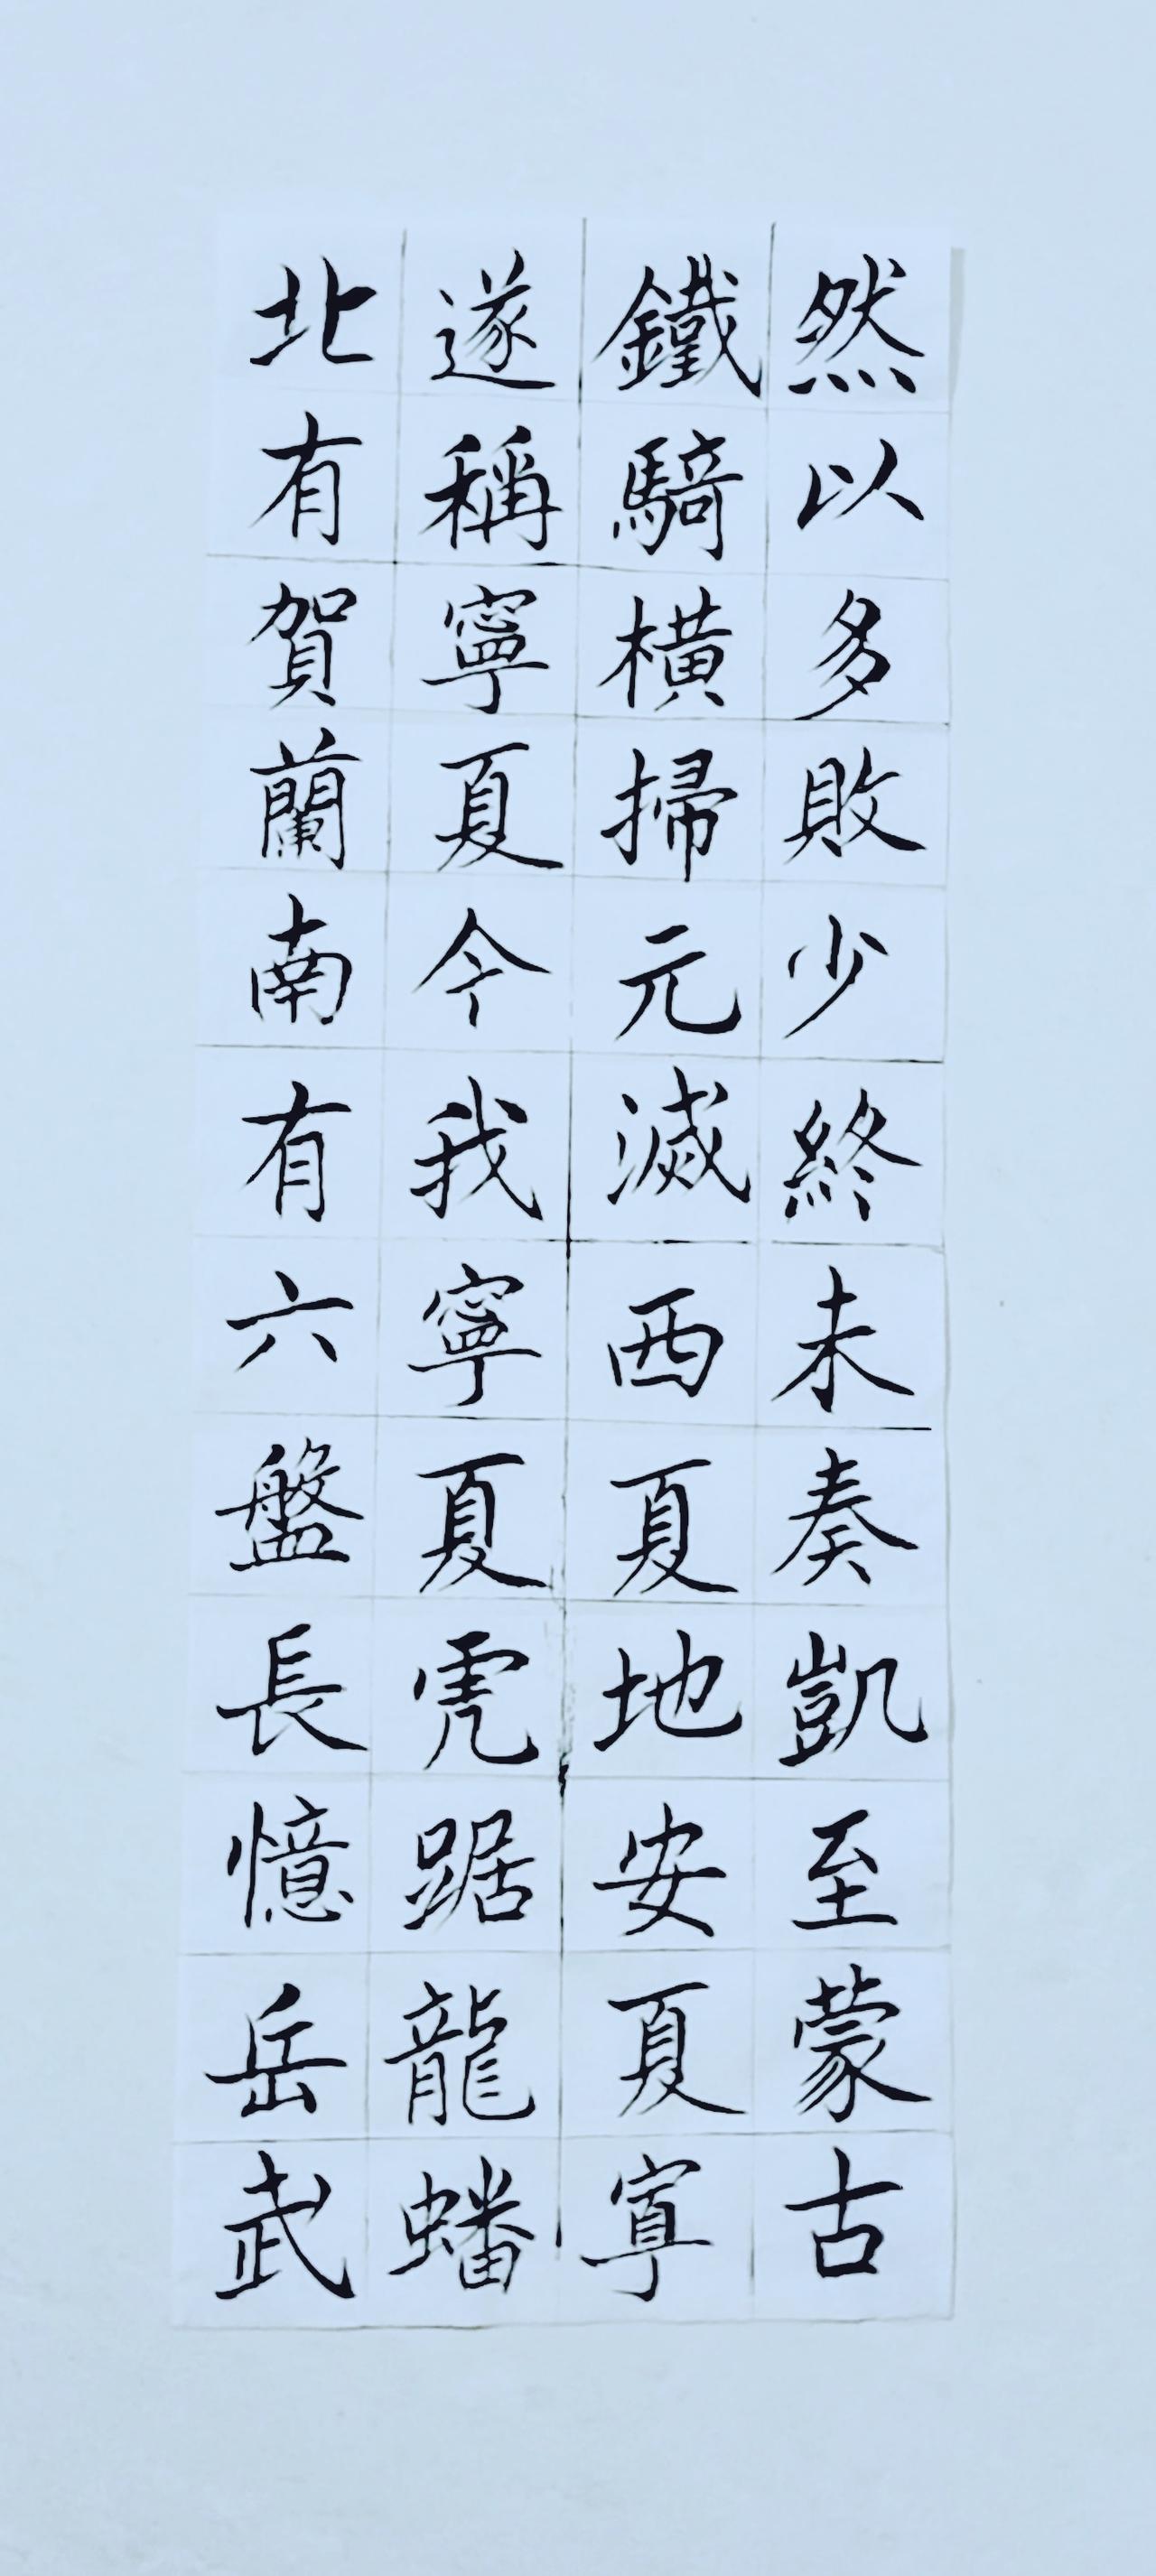 然以多敗少終未奏凱至蒙古
鐵騎橫掃元滅西夏地安夏寧
遂稱寧夏今我寧夏虎踞龍蟠
北有賀蘭南有六盤長憶岳武